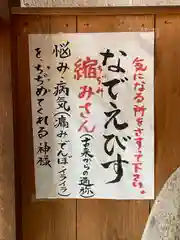 気になる所をさすって下さい。
なでえびす
縮みさん
(古来からの通称)
悩み・病気(痛み・でんぼ・イライラ)
を、ちぢめてくれる神様